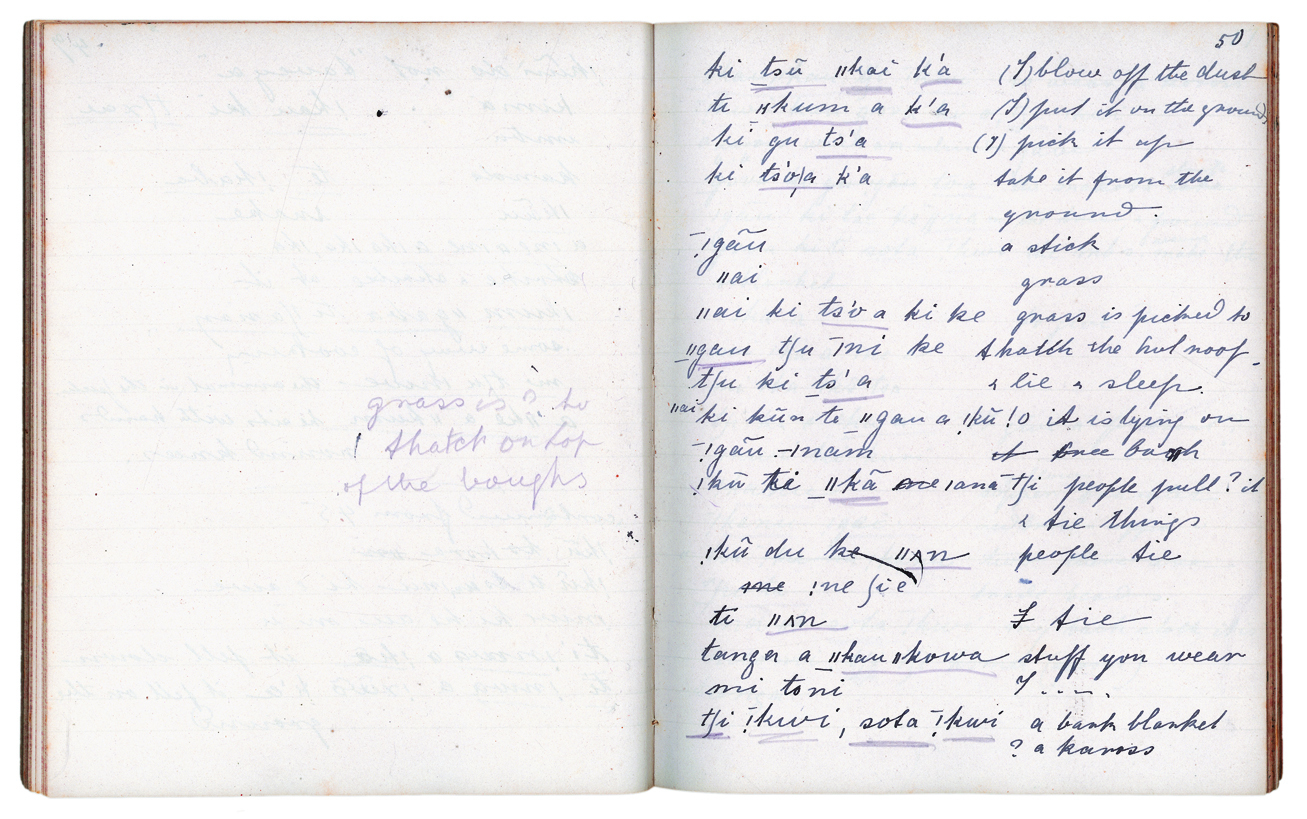 grass is ? to
thatch on top
of the boughs
50
ki tsū ǁkai k'a (I) blow off the dust
ti ǁkum a k'a (I) put it on the ground
ki gu ts'a (I) pick it up
ki ts'o/a k'a take it from the
ground.
ǃgãu a stick
ǁai grass
ǁai ki ts'o a ki ke grass is picked to
ǁgau tʃu ni ke thatch the hut roof.
tʃu ki ts'a & lie & sleep.
ǁai ki kũn te ǁgau a ǃkũ ǃo it is lying on
ǃgãu ǀnam it
ǃkũ ki ǁkã ǀana tʃi people pull? it
& tie things
ǃkũ du ke ǁʌn people tie
me ǃne ʃie
ti ǁʌn I tie
tanga a ǁkauǁkowa stuff you wear
mi toni I ....
tʃi ǃkwi, sota ǃkwi a bark blanket
? a kaross